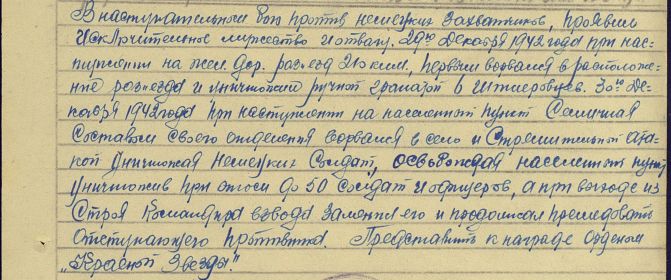 В наступательном бою против немецких захватчиков, проявил
исключительное мужество и отвагу. 29го декабря 1942 года при нас-
туплении на жел. дор. разъезд 210 клм, первым ворвался в расположе-
ние разъезда и уничтожил ручной гранатой 8 гитлеровцев. 30го де-
кабря 1942 года при наступлении на населенный пункт
составом своего отделения ворвался в село и стремительной ата-
кой уничтожая немецких солдат, освобождая населенный пункт
уничтожив при этом до 50 солдат и офицеров, а при выходе из
строя командира взвода заменил его и продолжал преследовать
отступающего противника. Представить к награде орденом
"Красной Звезды".